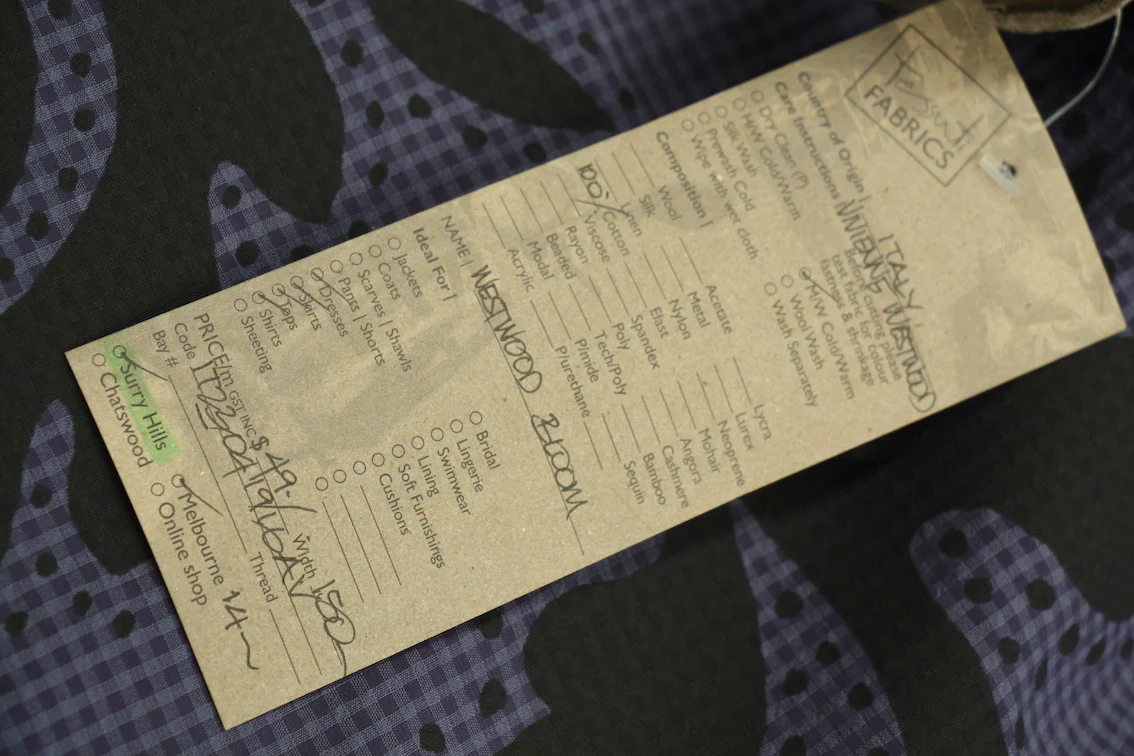 Tessuti
FABRICS
Country of Origin | ITALY
Care Instructions VIVIENNE WESTWOOD
Before cutting please
test fabric for colour
fastness & shrinkage
Dry Clean (P)
H/W Cold/Warm
Silk Wash
Prewash Cold
Wipe with wet cloth
M/W Cold/Warm
Wool Wash
Wash Separately
Composition |
Wool
Silk
Linen
100% Cotton
Viscose
Rayon
Beaded
Modal
Acrylic
Acetate
Metal
Nylon
Elast
Spandex
Poly
Tech/Poly
P/mide
P/urethane
Lycra
Lurex
Neoprene
Mohair
Angora
Cashmere
Bamboo
Sequin
NAME | WESTWOOD BLOOM
Ideal For |
Jackets
Coats
Scarves | Shawls
Pants | Shorts
Dresses
Skirts
Tops
Shirts
Sheeting
Bridal
Lingerie
Swimwear
Lining
Soft Furnishings
Cushions
PRICE/m GST INC $49.- Width 150
Code
Bay # Thread
Surry Hills
Chatswood
Melbourne 14m
Online shop